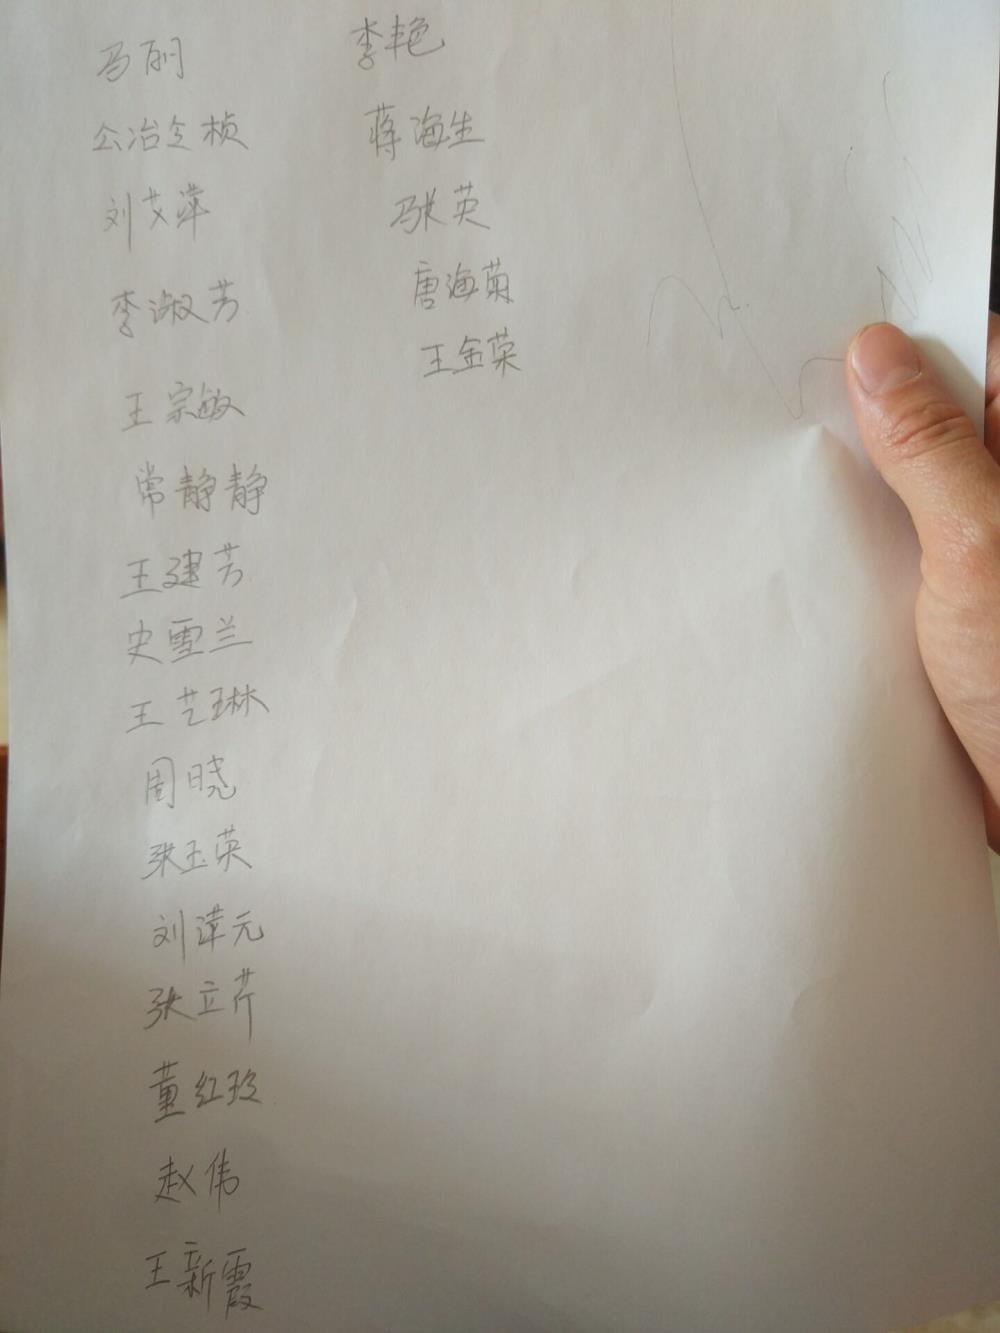 马丽
公冶令桢
刘艾萍
李淑芳
王宗敏
常静静
王建芳
史雪兰
王艺琳
周晓
张玉英
刘萍元
张立芹
董红玫
赵伟
王新霞
李艳
蒋海生
张英
唐海菊
王金荣